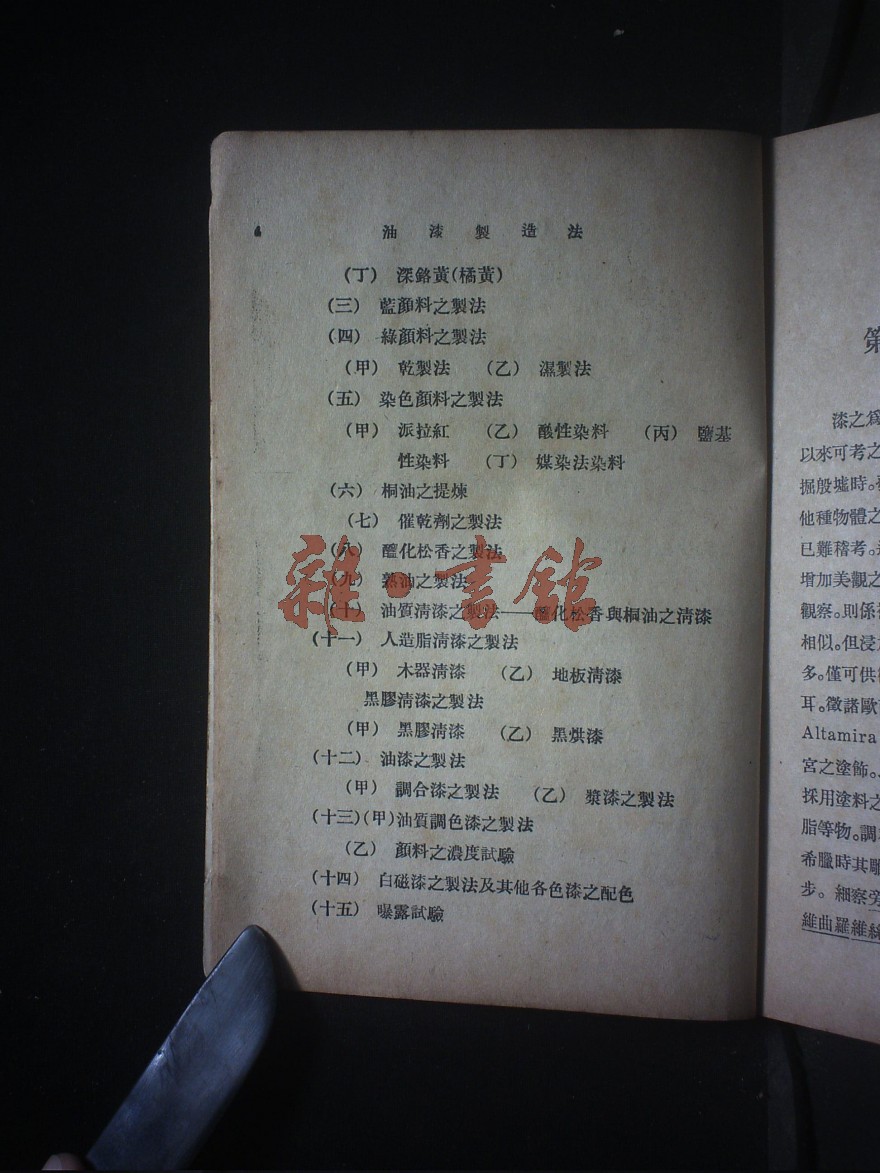 油漆製造法
(丁) 深鉻黃(橘黃)
(三) 藍顏料之製法
(四) 綠顏料之製法
(甲) 乾製法 (乙) 濕製法
(五) 染色顏料之製法
(甲) 派拉紅 (乙) 酸性染料 (丙) 鹽基
性染料 (丁) 媒染法染料
(六) 桐油之提煉
(七) 催乾劑之製法
(八) 醯化松香之製法
(九) 熟油之製法
(十) 油質淸漆之製法——醯化松香與桐油之淸漆
(十一) 人造脂淸漆之製法
(甲) 木器淸漆 (乙) 地板淸漆
黑膠淸漆之製法
(甲) 黑膠淸漆 (乙) 黑烘漆
(十二) 油漆之製法
(甲) 調合漆之製法 (乙) 漿漆之製法
(十三)(甲)油質調色漆之製法
(乙) 顏料之濃度試驗
(十四) 白磁漆之製法及其他各色漆之配色
(十五) 曝露試驗
雜·書館
第
漆之爲
以來可考之
掘殷墟時。
他種物體之
已難稽考。
增加美觀之
觀察。則係
相似。但浸
多。僅可供
耳。徵諸歐
Altamira
宮之塗飾。
採用塗料之
脂等物。調
希臘時其雕
步。細察旁
維曲羅維